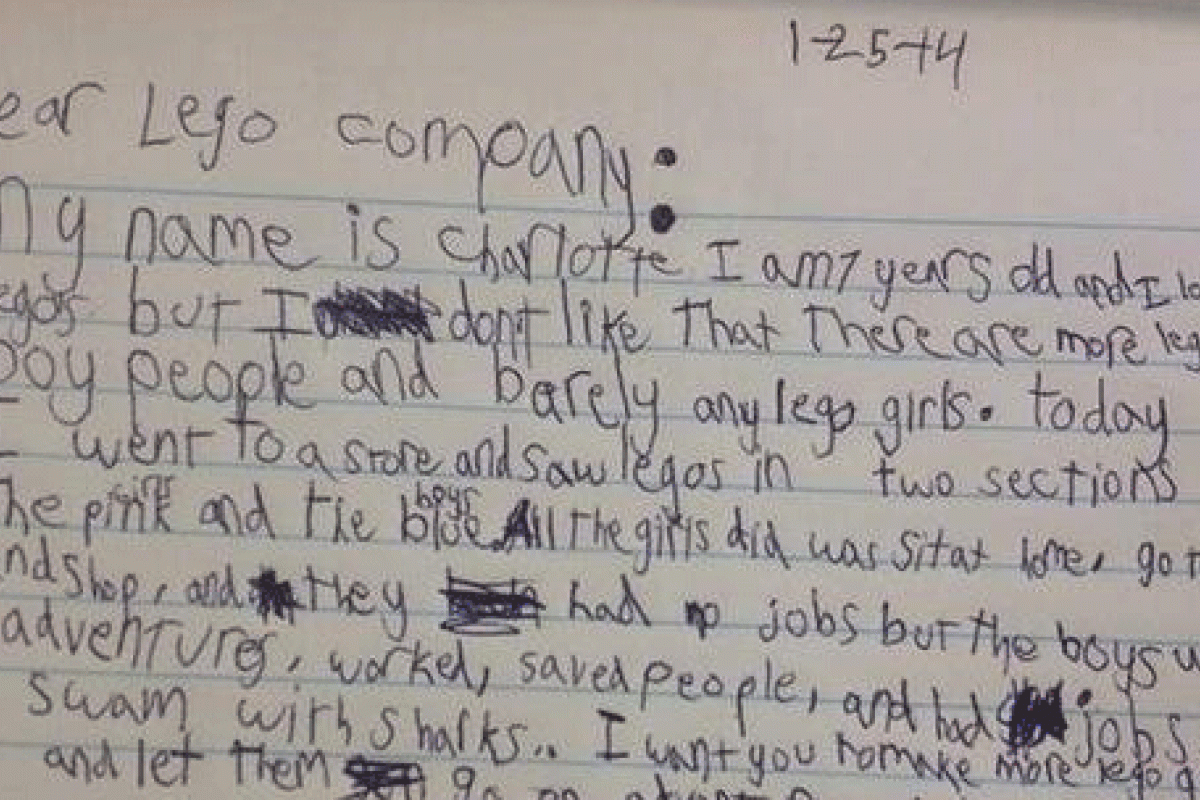 1-25-14
ear Lego company:
My name is Charlotte I am 7 years old and I lo
egos but I don't like that there are more leg
boy people and barely any lego girls. today
I went to a store and saw legos in two sections
the pink girls and the blue boys. All the girls did was sit at home, go t
nd shop, and they had no jobs but the boys w
adventures, worked, saved people, and had jobs
swam with sharks.. I want you to make more lego g
and let them go on